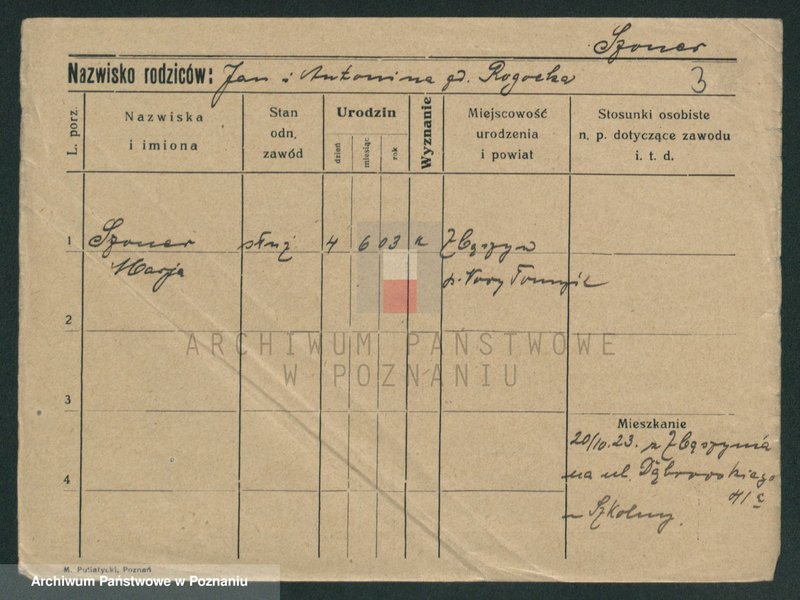 Szoner
Nazwisko rodziców: Jan i Antonina gd. Rogocka 3
L. porz.
Nazwiska
i imiona
Stan
odn.
zawód
Urodzin
dzień
miesiąc
rok
Wyznanie
Miejscowość
urodzenia
i powiat
Stosunki osobiste
n. p. dotyczące zawodu
i. t. d.
1 Szoner służ 4 6 03 k Zbąszyn
Marja p. Nowy Tomyśl
2
ARCHIWUM PAŃSTWOWE
W POZNANIU
3
Mieszkanie
20/10.23. z Zbąszynia
4 na ul. Dąbrowskiego
41
Szkolny
M. Putiatycki, Poznań
Archiwum Państwowe w Poznaniu